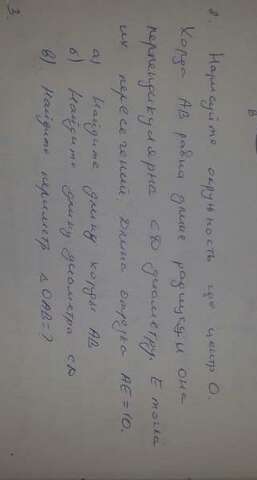 В
8. Нарисуйте окружность где центр О.
Хорда АВ равна длине радиуса и она
перпендикулярна СД диаметру. Е точка
их пересечений. Длина отрезка АЕ=10.
а) Найдите длину хорды АВ
б) Найдите длину диаметра СД
в) Найдите периметр △ОАВ=?
3